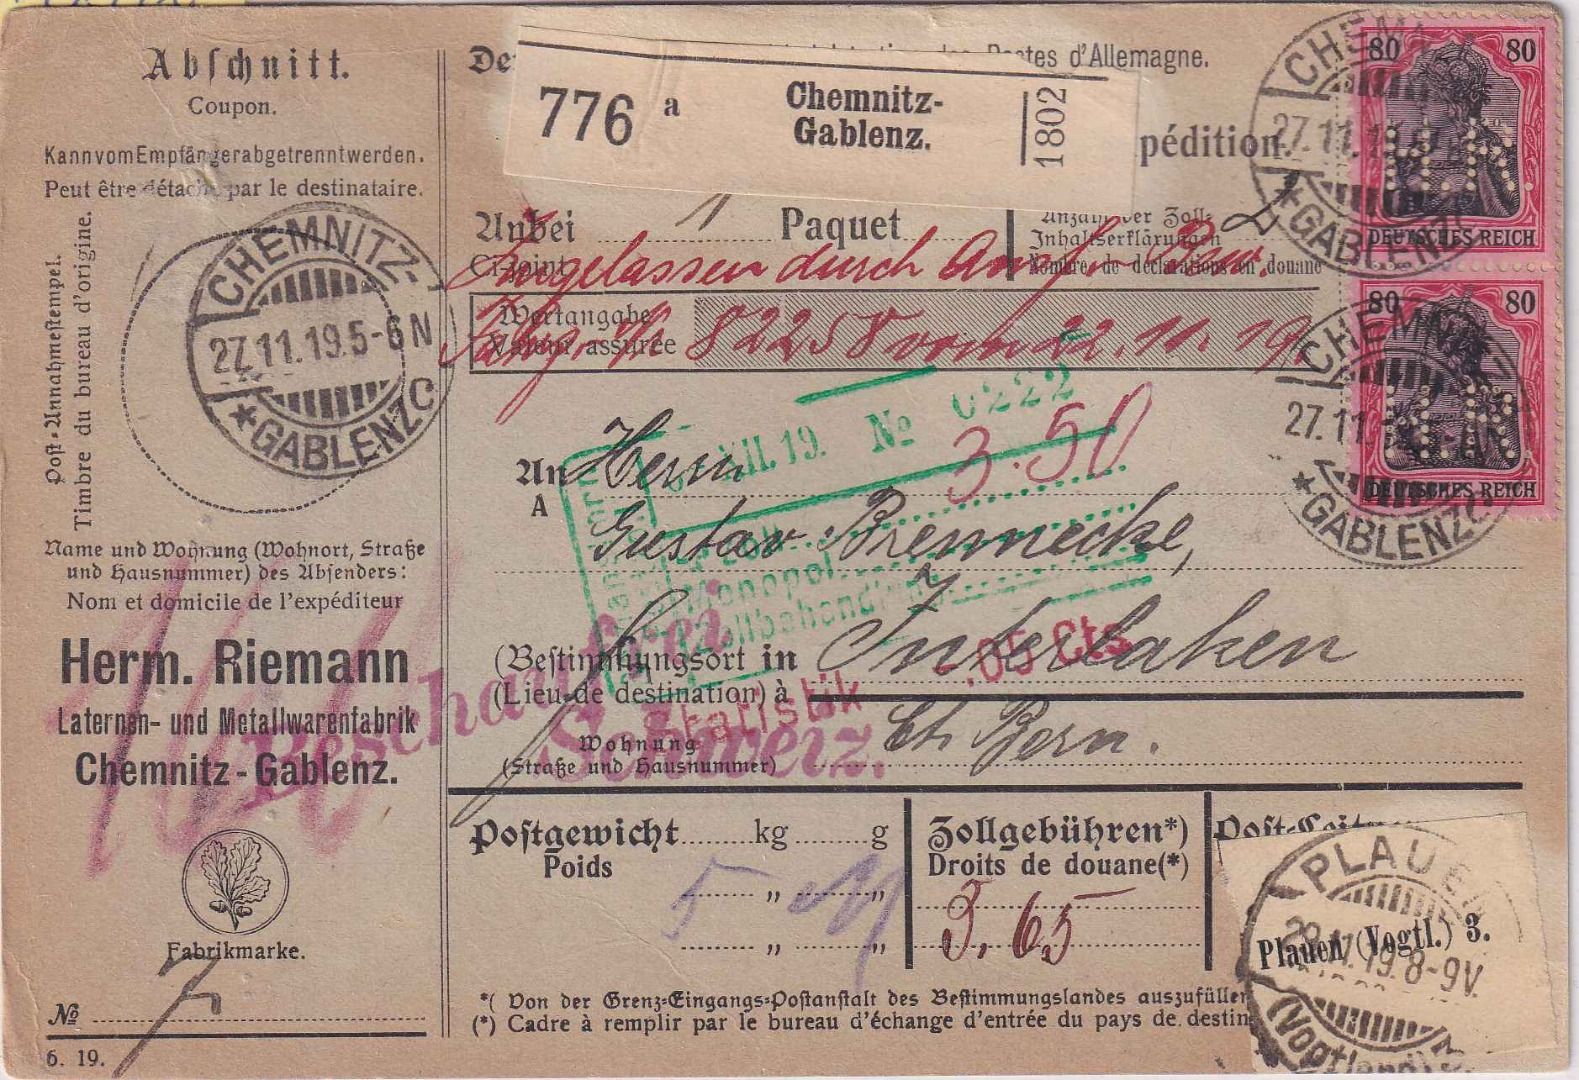 Abschnitt.
Coupon.
Kann vom Empfänger abgetrennt werden.
Peut être détaché par le destinataire.
Post-Annahmestempel.
Timbre du bureau d'origine.
CHEMNITZ-
27.11.19.5-6 N
*GABLENZ C
Name und Wohnung (Wohnort, Straße
und Hausnummer) des Absenders:
Nom et domicile de l'expéditeur
Herm. Riemann
Laternen- und Metallwarenfabrik
Chemnitz-Gablenz.
Fabrikmarke.
№
6. 19.
des Postes d'Allemagne.
776 a
Chemnitz-
Gablenz.
1802
pédition.
Anbei 1 Paquet
Anzahl der Zoll-
Inhaltserklärungen 2
Ci-joint
Nombre de déclarations en douane
Zugelassen durch
Wertangabe
Valeur assurée
82258 vom 22.11.19
XII. 19. № 0222
3.50
An Herrn
A
Gustav Brennecke,
Monopol
Zollbehandlung
(Bestimmungsort in Interlaken
(Lieu de destination) à
.05 Cts
Statistik
Beschau frei
Schweiz.
Ct. Bern.
Wohnung
(Straße und Hausnummer)
Postgewicht kg g
Poids
5
" "
" "
Zollgebühren*)
Droits de douane(*)
3.65
*( Von der Grenz-Eingangs-Postanstalt des Bestimmungslandes auszufüllen
(*) Cadre à remplir par le bureau d'échange d'entrée du pays de destin
80 80
DEUTSCHES REICH
80 80
DEUTSCHES REICH
CHEMN
27.11.1
*GABLENZ
CHEMN
27.11
*GABLENZ C
Plauen (Vogtl.) 3.
PLAUEN
19.8-9V.
(Vogtland)